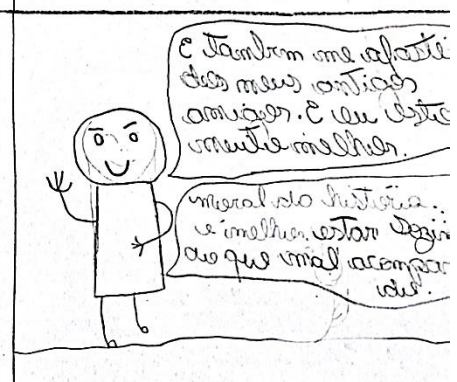 E tanbrm me afaste
dos meus antigos
amigos. E eu esto
muite melhor.
moral da historia..
e melhor estar sozin
do que mal acompan
do.